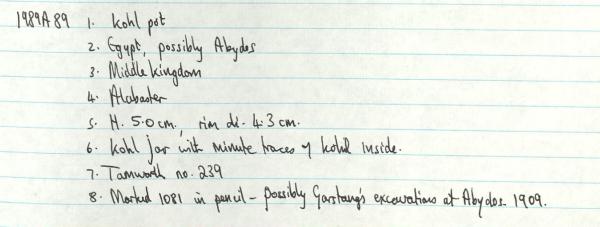 1989A89 1. Kohl pot
2. Egypt, possibly Abydos
3. Middle Kingdom
4. Alabaster
5. H. 5.0 cm, rim di. 4.3 cm.
6. Kohl jar with minute traces of kohl inside.
7. Tamworth no. 239
8. Marked 1081 in pencil - possibly Garstang's excavations at Abydos 1909.